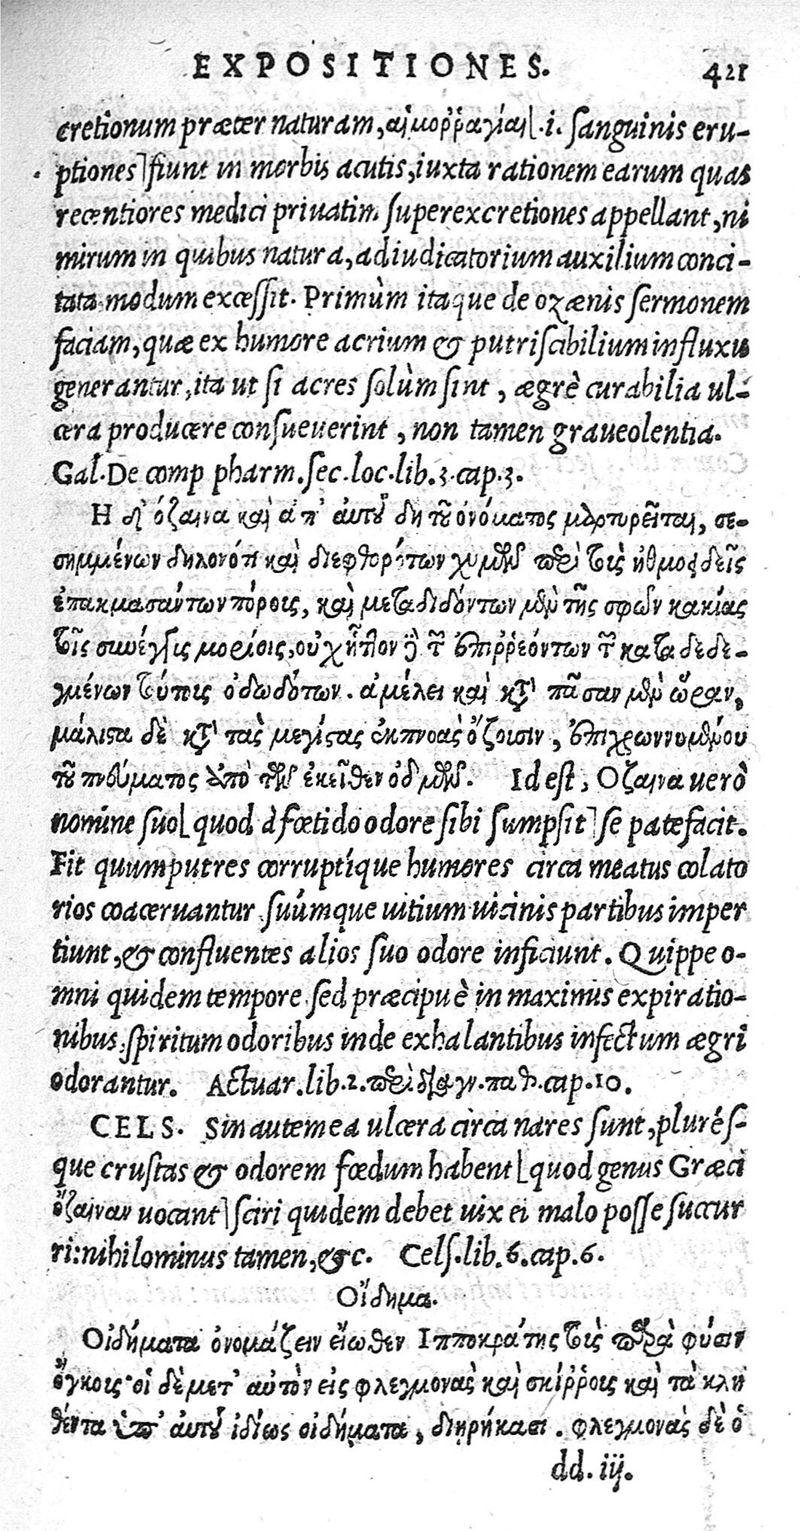 EXPOSITIONES. 421
cretionum præter naturam, αἱμοῤῥαγίαι[.i. sanguinis eru-
ptiones] fiunt in morbis acutis, iuxta rationem earum quas
recentiores medici priuatim superexcretiones appellant, ni
mirum in quibus natura, ad iudicatorium auxilium conci-
tata modum excessit. Primùm itaque de ozænis sermonem
faciam, quæ ex humore acrium & putriscibilium influxu
generantur, ita ut si acres solùm sint, ægrè curabilia ul-
cera producere consueuerint, non tamen graueolentia.
Gal. De comp pharm. sec. loc. lib. 3. cap. 3.
Η δ' ὄζαινα καὶ ἀπ' αὐτοῦ δὴ τοῦ ὀνόματος μαρτυρεῖται, σε-
σημμένων δηλονότι καὶ διεφθορότων χυμῶν περὶ τοῖς ἠθμοειδεῖς
ἐπακμασάντων πόροις, καὶ μεταδιδόντων μὲν τῆς σφῶν κακίας
τοῖς συνέγγις μορίοις, οὐχ ἧττον ἢ τ ἐπιῤῥεόντων τ κατα δεδε-
γμένων τύποις ὀδωδότων. ἀμέλει καὶ κατὰ πᾶσαν μὲν ὥραν,
μάλιστα δὲ κατὰ τὰς μεγίστας ἐκπνοὰς ὄζουσιν, ἐπιχρωννυμένου
τοῦ πνεύματος ὑπὸ τῶν ἐκεῖθεν ὀδμῶν. Id est, Ozaina uerò
nomine suo[quod à fœtido odore sibi sumpsit] se patefacit.
Fit quum putres corruptíque humores circa meatus colato
rios coaceruantur suúmque uitium uicinis partibus imper
tiunt, & confluentes alios suo odore inficiunt. Quippe o-
mni quidem tempore sed præcipuè in maximis expiratio-
nibus, spiritum odoribus inde exhalantibus infectum ægri
odorantur. Actuar. lib. 2. περὶ διαγν. παθ. cap. 10.
CELS. Sin autem ea ulcera circa nares sunt, plurés-
que crustas & odorem fœdum habent[quod genus Græci
ὄζαιναν uocant] sciri quidem debet uix ei malo posse succur
ri: nihilominus tamen, &c. Cels. lib. 6. cap. 6.
Οἴδημα.
Οἰδήματα ὀνομάζειν εἴωθεν Ιπποκράτης τοὺς παρὰ φύσιν
ὄγκοις· οἱ δὲ μετ' αὐτὸν εἰς φλεγμονὰς καὶ σκίῤῥοις καὶ τὰ κλη
θέντα ὑπ' αὐτοῦ ἰδίως οἰδήματα, διῃρήκασι. φλεγμονὰς δὲ ὁ
dd. iij.